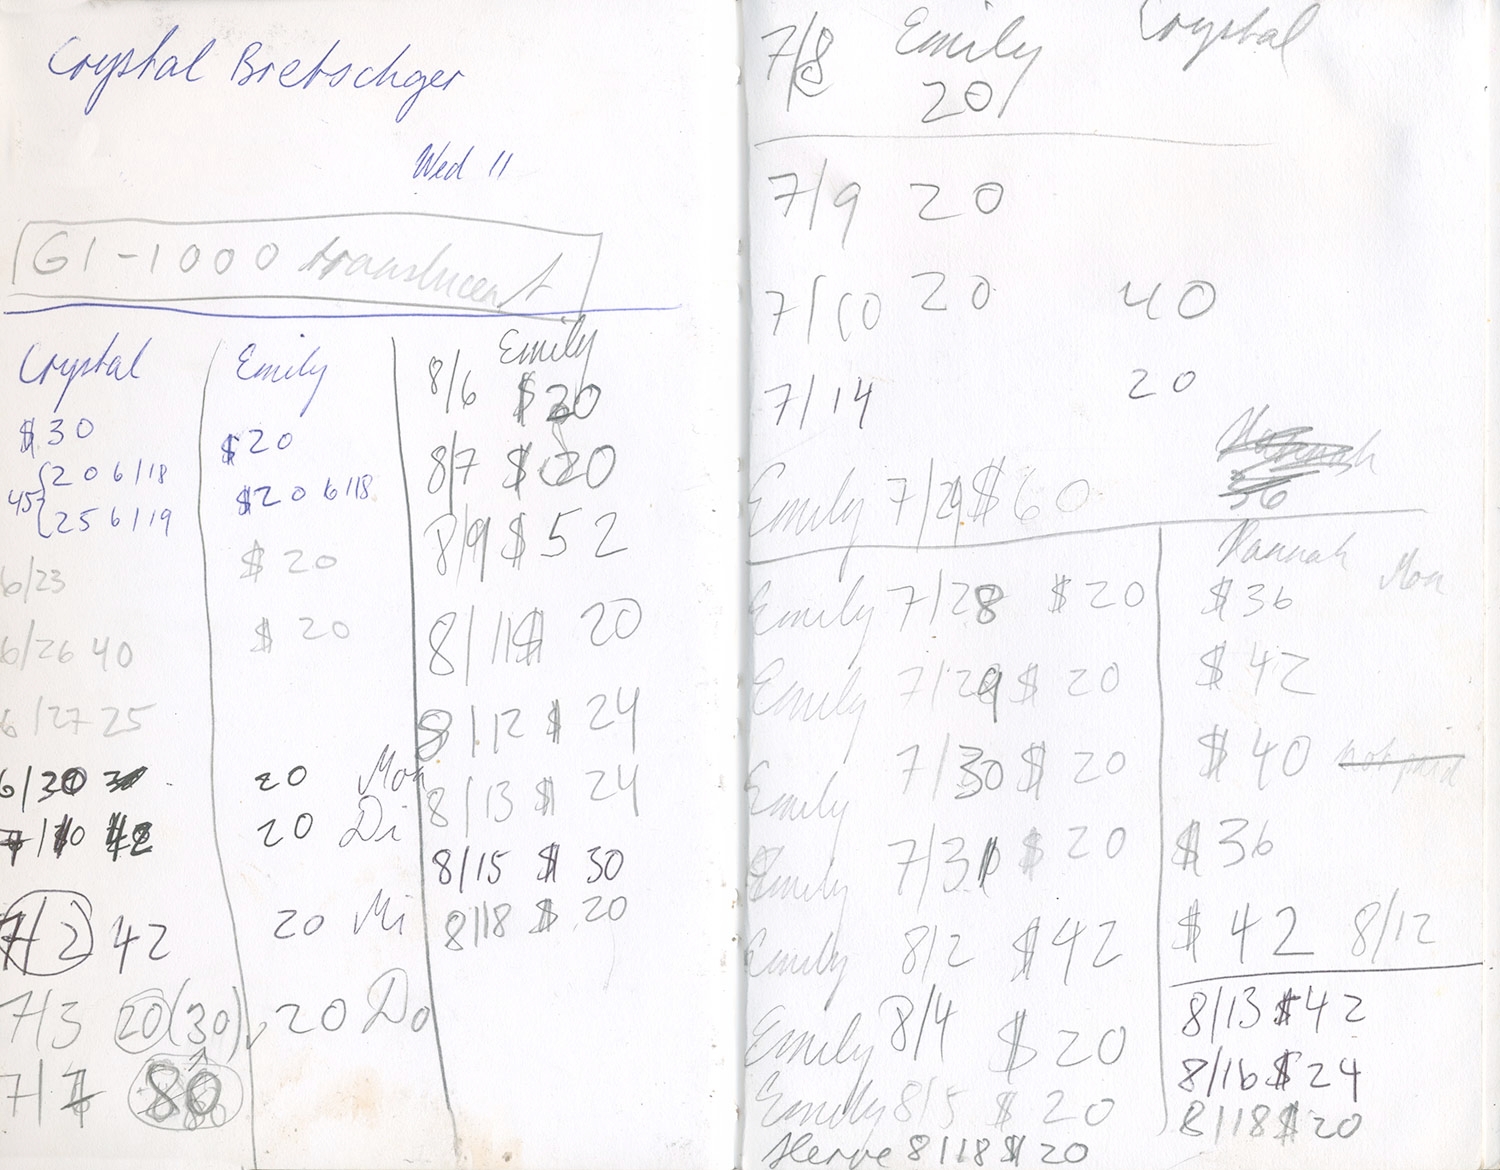 Crystal Bretschger
Wed 11
G1-1000 translucent
Crystal
$ 30
45
20 6/18
25 6/19
6/23
6/26 40
6/27 25
6/30
7/2 42
7/3 20 (30)
7/7 80
Emily
$20
$20 6/18
$ 20
$ 20
20 Mon
20 Di
20 Mi
20 Do
Emily
8/6 $ 20
8/7 $ 20
8/9 $ 52
8/11 $ 20
8/12 $ 24
8/13 $ 24
8/15 $ 30
8/18 $ 20
7/8 Emily Crystal
20
7/9 20
7/10 20 40
7/14 20
Hannah
36
Emily 7/24 $ 60
Emily 7/28 $ 20
Emily 7/29 $ 20
Emily 7/30 $ 20
Emily 7/31 $ 20
Emily 8/2 $ 42
Emily 8/4 $ 20
Emily 8/5 $ 20
Herve 8/18 $ 20
Hannah Mon
$ 36
$ 42
$ 40 not paid
$ 36
$ 42 8/12
8/13 $ 42
8/16 $ 24
8/18 $ 20